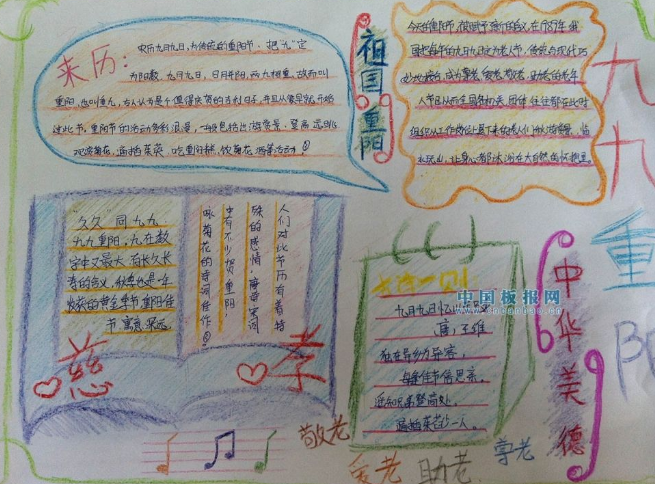 来历:
农历九月九日,为传统的重阳节。把"九"定
为阳数,九月九日,日月并阳,两九相重,故而叫
重阳,也叫重九,古人认为是个值得庆贺的吉利日子,并且从很早就开始
过此节,重阳节的活动多彩浪漫,一般包括出游赏景、登高远眺、
观赏菊花、遍插茱萸、吃重阳糕、饮菊花酒等活动。
祖国重阳
今天的重阳节,被赋予新的含义,在1989年,我
国把每年的九月九日定为老人节,传统与现代巧
妙地结合,成为尊老、敬老、爱老、助老的老年
人节日,从而全国各机关、团体、往往都在此时
组织从工作岗位上退下来的老人们秋游赏景,临
水玩山,让身心都沐浴在大自然的怀抱里。
九
九
重
阳
"久久"同九九
九九重阳,九在数
字中又最大,有长久长
寿的含义,秋季也是一年
收获的黄金季节,重阳佳
节,寓意深远。
人们对此节历有着特
殊的感情,唐诗宋词
中有不少贺重阳,
咏菊花的诗词佳作。
慈
孝
古诗一则
九月九日忆山东兄弟
唐:王维
独在异乡为异客,
每逢佳节倍思亲。
遥知兄弟登高处,
遍插茱萸少一人。
中国板报网
中华美德
敬老
爱老
助老
享老